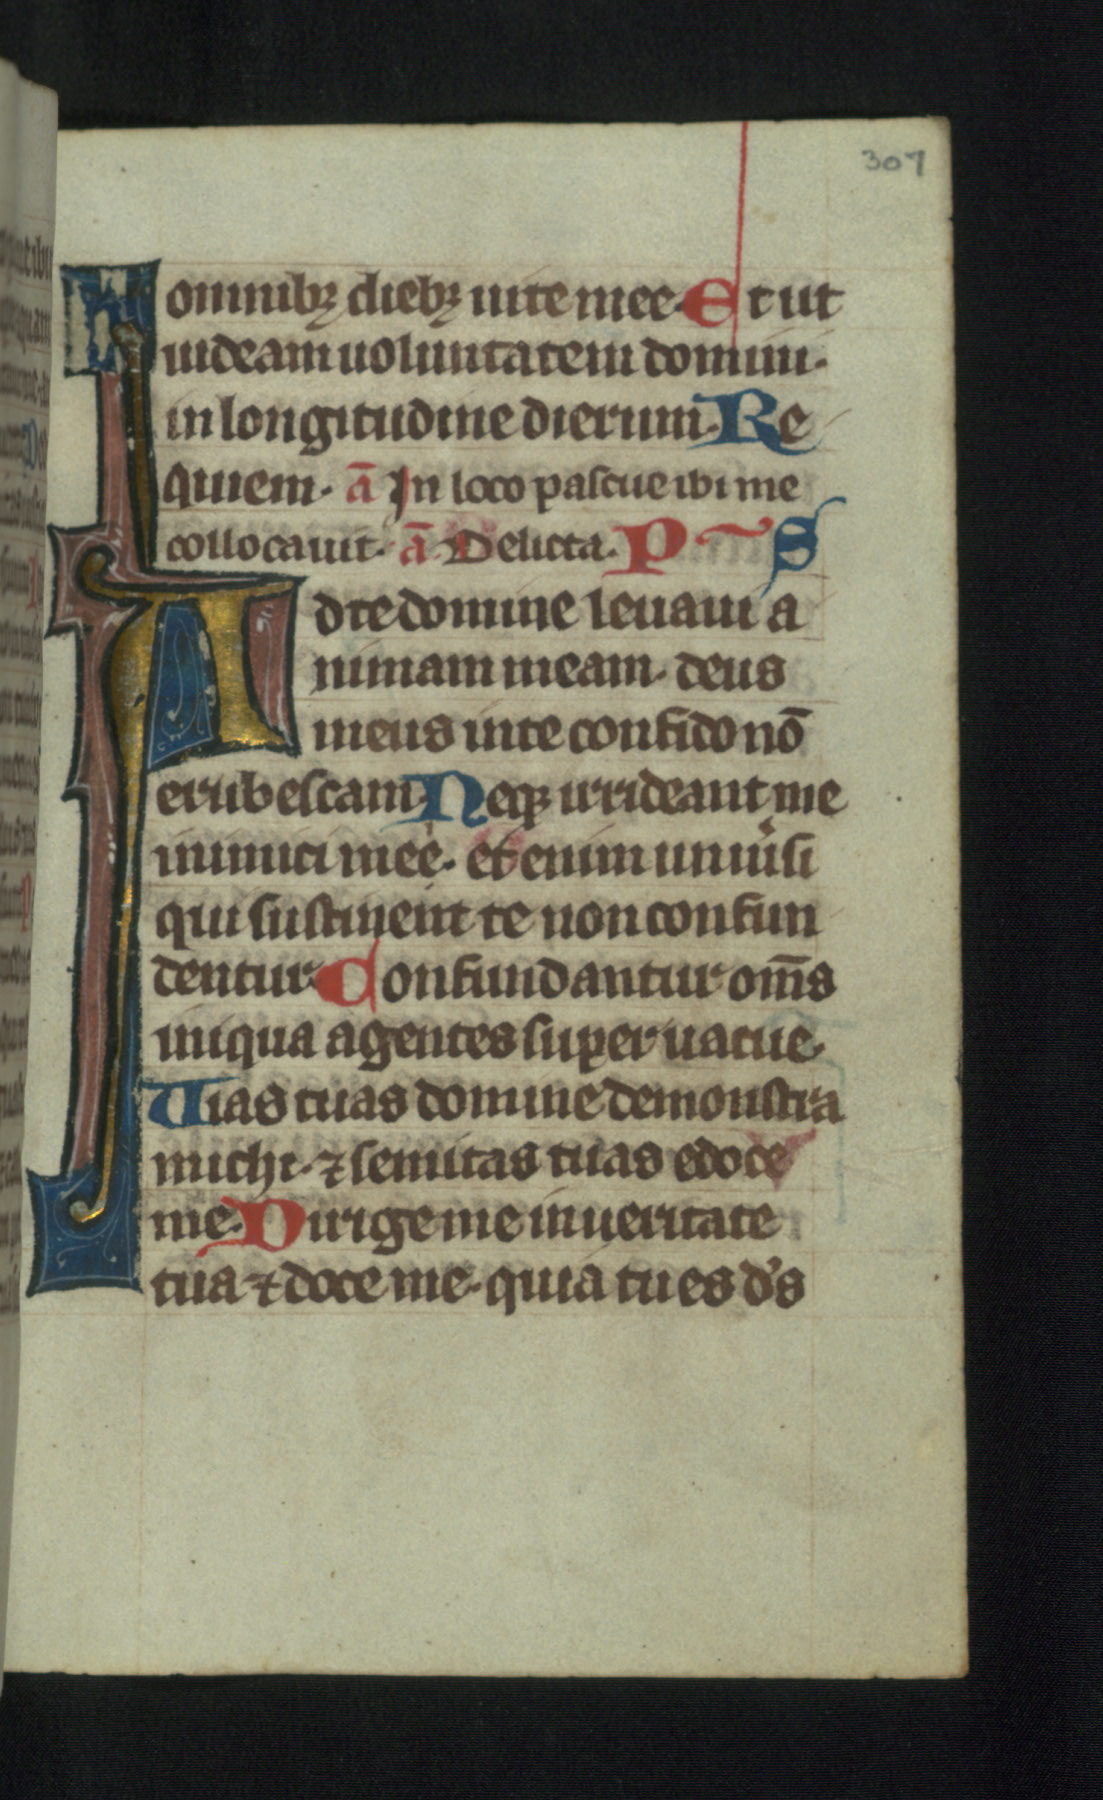 307
omnibꝫ diebꝫ uite mee. Et ut
uideam uoluntatem domini.
in longitudine dierum. Re
quiem. ā In loco pascue ibi me
collocauit. ā Delicta. P S
Ad te domine leuaui a
nimam meam. deus
meus in te confido nō
erubescam. Neqꝫ irrideant me
inimici mei. etenim uniu'si
qui sustinent te non confun
dentur. Confundantur om̄s
iniqua agentes super uacue.
Uias tuas domine demonstra
michi. ⁊ semitas tuas edoce
me. Dirige me in ueritate
tua ⁊ doce me. quia tu es d's